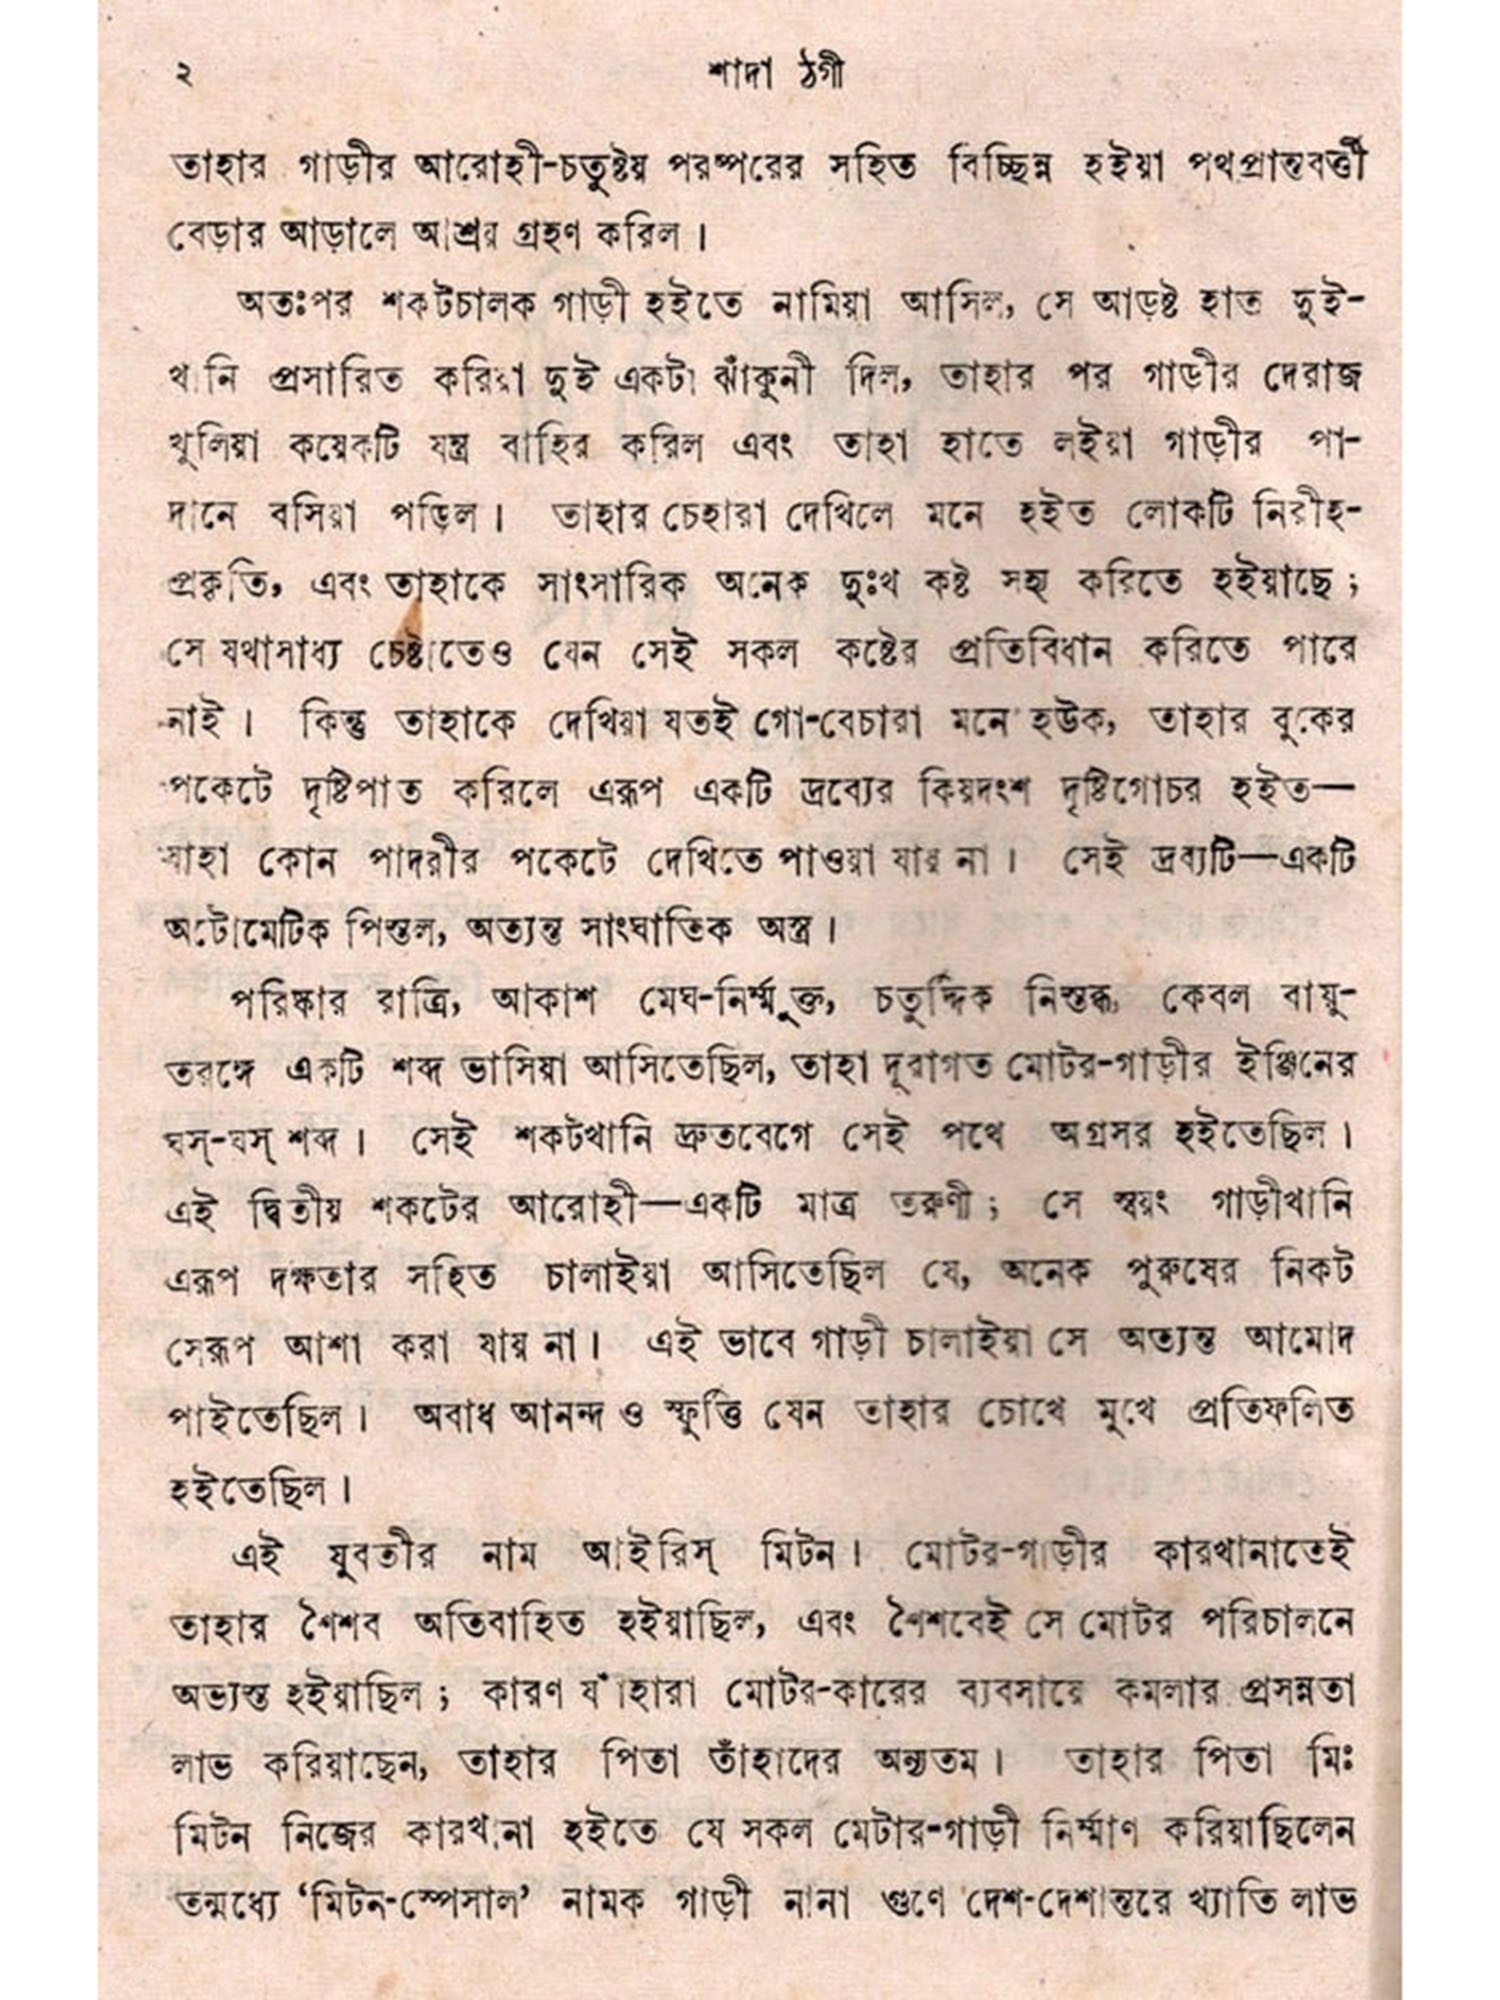 ২ শাদা ঠগী
তাহার গাড়ীর আরোহী-চতুষ্টয় পরস্পরের সহিত বিচ্ছিন্ন হইয়া পথপ্রান্তবর্ত্তী
বেড়ার আড়ালে আশ্রয় গ্রহণ করিল।
অতঃপর শকটচালক গাড়ী হইতে নামিয়া আসিল, সে আড়ষ্ট হাত দুই-
খানি প্রসারিত করিয়া দুই একটা ঝাঁকুনী দিল, তাহার পর গাড়ীর দেরাজ
খুলিয়া কয়েকটি যন্ত্র বাহির করিল এবং তাহা হাতে লইয়া গাড়ীর পা-
দানে বসিয়া পড়িল। তাহার চেহারা দেখিলে মনে হইত লোকটি নিরীহ-
প্রকৃতি, এবং তাহাকে সাংসারিক অনেক দুঃখ কষ্ট সহ্য করিতে হইয়াছে ;
সে যথাসাধ্য চেষ্টাতেও যেন সেই সকল কষ্টের প্রতিবিধান করিতে পারে
নাই। কিন্তু তাহাকে দেখিয়া যতই গো-বেচারা মনে হউক, তাহার বুকের
পকেটে দৃষ্টিপাত করিলে এরূপ একটি দ্রব্যের কিয়দংশ দৃষ্টিগোচর হইত—
যাহা কোন পাদরীর পকেটে দেখিতে পাওয়া যায় না। সেই দ্রব্যটি—একটি
অটোমেটিক পিস্তল, অত্যন্ত সাংঘাতিক অস্ত্র।
পরিষ্কার রাত্রি, আকাশ মেঘ-নির্ম্মুক্ত, চতুর্দ্দিক নিস্তব্ধ, কেবল বায়ু-
তরঙ্গে একটি শব্দ ভাসিয়া আসিতেছিল, তাহা দূরাগত মোটর-গাড়ীর ইঞ্জিনের
ঘস্-ঘস্ শব্দ। সেই শকটখানি দ্রুতবেগে সেই পথে অগ্রসর হইতেছিল।
এই দ্বিতীয় শকটের আরোহী—একটি মাত্র তরুণী ; সে স্বয়ং গাড়ীখানি
এরূপ দক্ষতার সহিত চালাইয়া আসিতেছিল যে, অনেক পুরুষের নিকট
সেরূপ আশা করা যায় না। এই ভাবে গাড়ী চালাইয়া সে অত্যন্ত আমোদ
পাইতেছিল। অবাধ আনন্দ ও স্ফূর্ত্তি যেন তাহার চোখে মুখে প্রতিফলিত
হইতেছিল।
এই যুবতীর নাম আইরিস্ মিটন। মোটর-গাড়ীর কারখানাতেই
তাহার শৈশব অতিবাহিত হইয়াছিল, এবং শৈশবেই সে মোটর পরিচালনে
অভ্যস্ত হইয়াছিল ; কারণ যাঁহারা মোটর-কারের ব্যবসায়ে কমলার প্রসন্নতা
লাভ করিয়াছেন, তাহার পিতা তাঁহাদের অন্যতম। তাহার পিতা মিঃ
মিটন নিজের কারখানা হইতে যে সকল মেটার-গাড়ী নির্ম্মাণ করিয়াছিলেন
তন্মধ্যে ‘মিটন-স্পেসাল’ নামক গাড়ী নানা গুণে দেশ-দেশান্তরে খ্যাতি লাভ